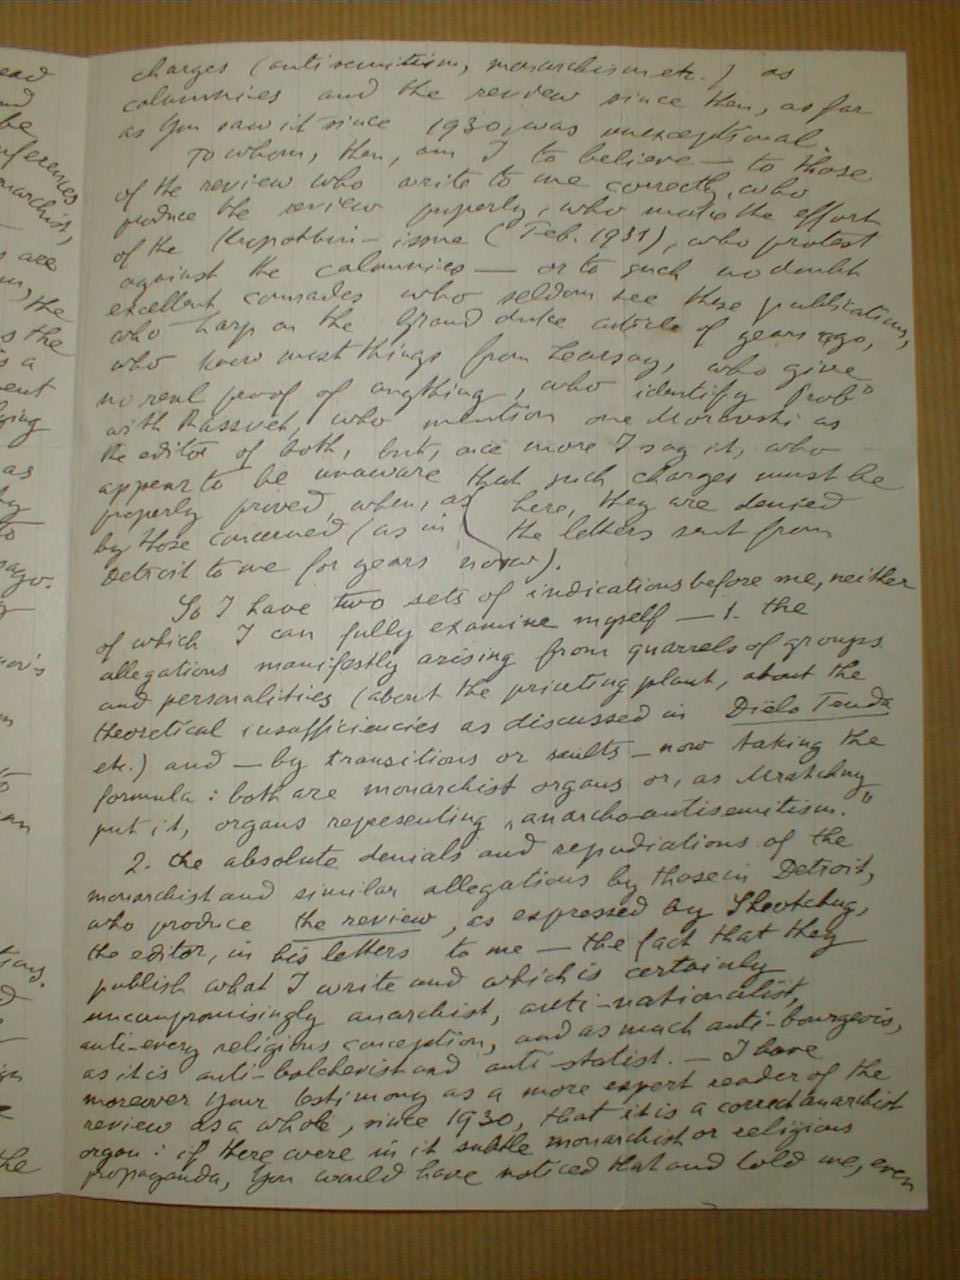 charges (antisemitism, monarchism etc.) as
calumnies and the review since then, as far
as you saw it since 1930, was unexceptional.
To whom, then, am I to believe — to those
of the review who write to me correctly, who
produce the review properly, who make the effort
of the Kropotkin-issue (Feb. 1931), who protest
against the calumnies — or to such no doubt
excellent comrades who seldom see these publications,
who harp on the Grand duke article of years ago,
who know most things from hearsay, who give
no real proof of anything, who identify Prob°
with Rassvet, who mention one Moravski as
the editor of both, but, once more I say it, who
appear to be unaware that such charges must be
properly proved, when, as here, they are denied
by those concerned (as in the letters sent from
Detroit to me for years now).
So I have two sets of indications before me, neither
of which I can fully examine myself — 1. the
allegations manifestly arising from quarrels of groups
and personalities (about the printing plant, about the
theoretical insufficiencies as discussed in Dielo Truda
etc.) and — by transitions or saults — now taking the
formula: both are monarchist organs or, as Mratchny
put it, organs representing „anarcho-antisemitism."
2. the absolute denials and repudiations of the
monarchist and similar allegations by those in Detroit,
who produce the review, as expressed by
the editor, in his letters to me — the fact that they
publish what I write and which is certainly
uncompromisingly anarchist, anti-nationalist,
anti-every religious conception, and as much anti-bourgeois,
as it is anti-bolchevist and anti-statist. — I have
moreover your testimony as a more expert reader of the
review as a whole, since 1930, that it is a correct anarchist
organ: if there were in it subtle monarchist or religious
propaganda, you would have noticed that and told me, even
ead
nd
be
ferences
narchist,
s are
the
s the
is a
vent
lying
as
by
to
ov's
an
tions.
the